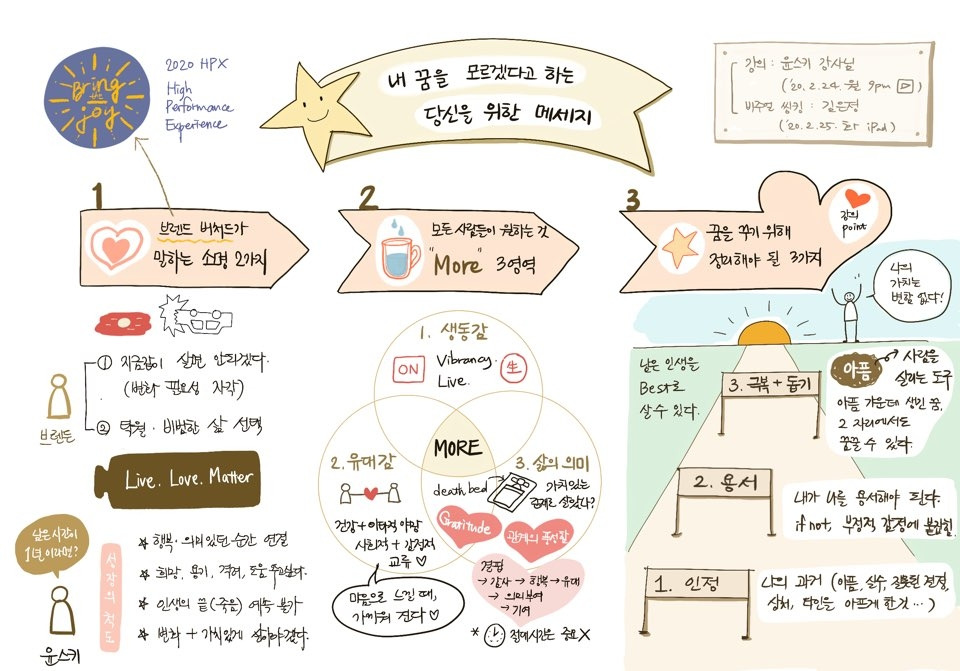 Bring
the
Joy
2020 HPX
High
Performance
Experience
내 꿈을 모르겠다고 하는
당신을 위한 메세지
강의 : 윤스키 강사님
('20.2.24. 월 9pm ▷)
비주얼 씽킹 : 김은정
('20.2.25. 화 iPad)
1
브렌든 버처드가
말하는 소명 2가지
① 지금같이 살면 안되겠다.
(변화 필요성 자각)
② 탁월 · 비범한 삶 선택
브렌든
Live. Love. Matter
남은 시간이
1년 이라면?
윤스키
성장의 척도
☆ 행복 · 의미있던 순간 연결
☆ 희망, 용기, 격려, 도움 주고받다.
☆ 인생의 끝(죽음) 예측 불가
☆ 변화 + 가치있게 살아야겠다.
2
모든 사람들이 원하는 것
"More" 3영역
1. 생동감
ON
Vibrancy.
Live.
生
MORE
2. 유대감
건강 + 이타적 야망
사회적 + 감정적
교류 ♡
마음으로 느낄 때,
가까워 진다 ♡
3. 삶의 의미
death bed
가치있는
존재로 살았나?
Gratitude
관계의 풍성함
경험
→ 감사 → 행복 → 유대
→ 의미부여
→ 기여
* 절대시간은 중요 X
3
꿈을 꾸기 위해
정리해야 될 3가지
강의
point
나의
가치는
변함 없다!
남은 인생을
Best로
살 수 있다.
3. 극복 + 돕기
아픔
사람을
살리는 도구
아픔 가운데 생긴 꿈,
2 자리에서도
꿈꿀 수 있다.
2. 용서
내가 나를 용서해야 된다.
if not, 부정적 감정에 붙잡힘.
1. 인정
나의 과거 (아픔, 실수, 잘못된 결정,
상처, 타인을 아프게 한것 ...)